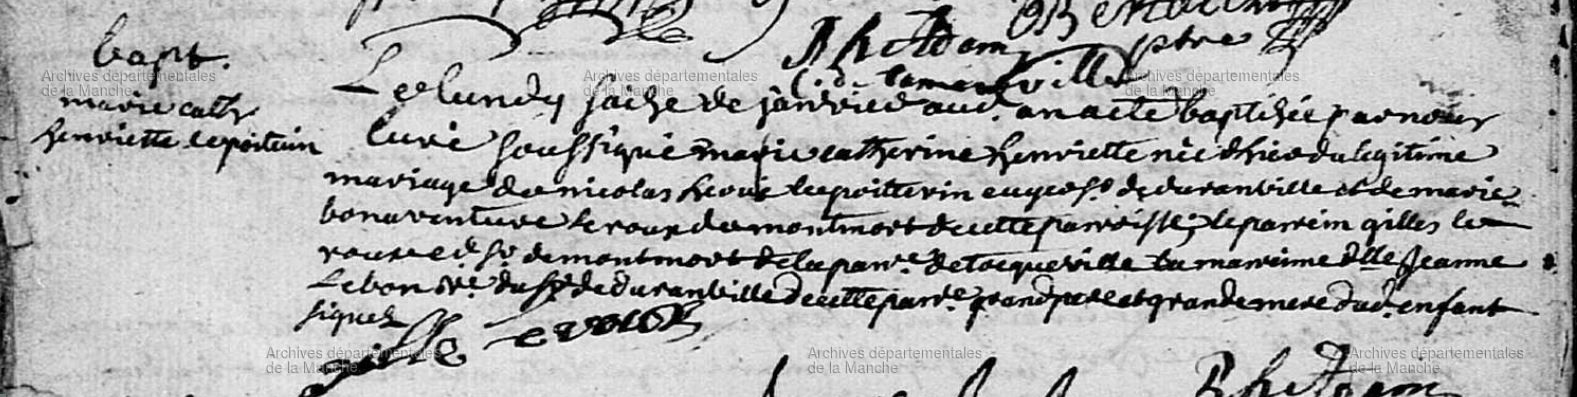 bapt.
marie cath
henriette lepoitevin
Le lundy saize de janvier aud. an a eté baptisée par nous
curé soussigné marie catherine henriette née d'hier du legitime
mariage de nicolas hervé lepoittevin de duranville et de marie
bonaventure leroux de montmort de cette parroisse; le parrein gilles le
roux de montmort de la parr. de tocqueville la mareine dlle Jeanne
Lebon du Sr de duranville de cette parr. grand pere et grande mere dud. enfant
signés
gille leroux
Archives départementales
de la Manche
Archives départementales
de la Manche
Archives départementales
de la Manche
Archives départementales
de la Manche
Archives départementales
de la Manche
Archives départementales
de la Manche